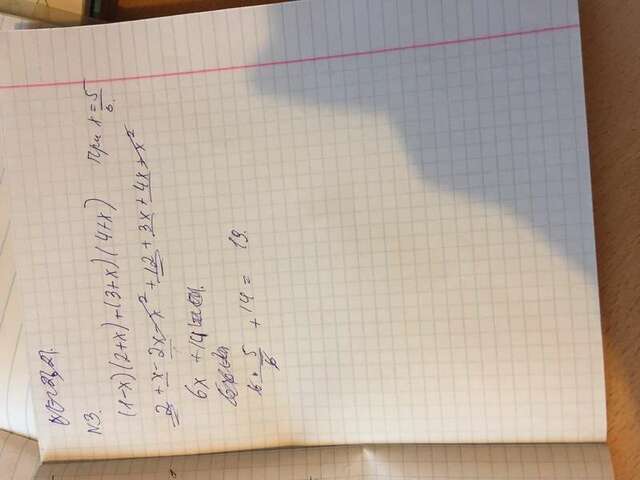 N3.
(1-x)(2+x)+(3+x)(4+x) при x = 5/6.
2 + x - 2x - x² + 12 + 3x + 4x + x²
6x + 14
6 · 5/6 + 14 = 19.